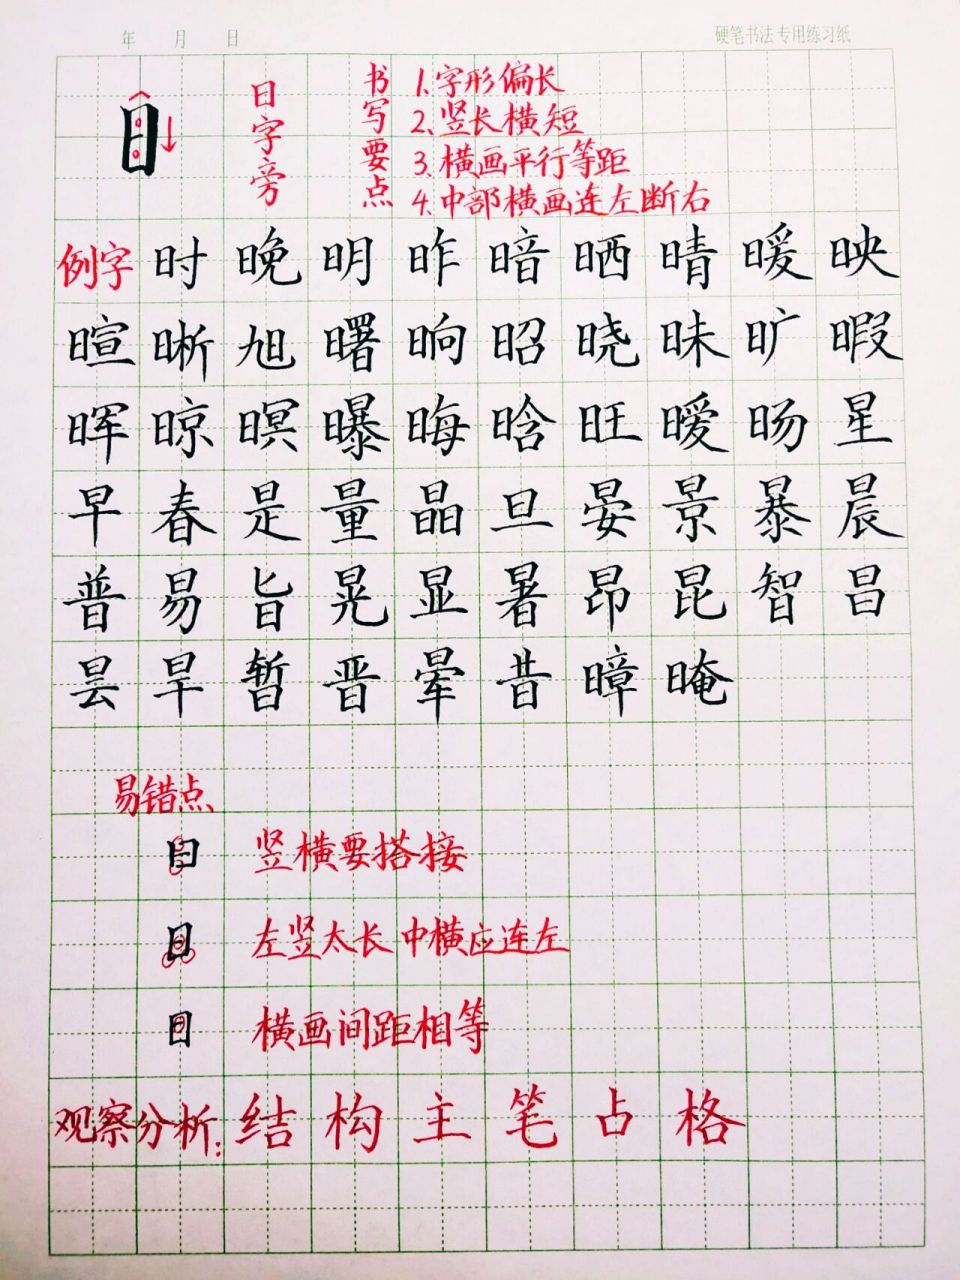 年 月 日 硬笔书法专用练习纸
日
日字旁
书写要点
1.字形偏长
2.竖长横短
3.横画平行等距
4.中部横画连左断右
例字 时 晚 明 昨 暗 晒 晴 暖 映
暄 晰 旭 曙 晌 昭 晓 昧 旷 暇
晖 晾 暝 曝 晦 晗 旺 暧 旸 星
早 春 是 量 晶 旦 晏 景 暴 晨
普 易 旨 晃 显 暑 昂 昆 智 昌
昙 旱 暂 晋 晕 昔 暲 晻
易错点
日 竖横要搭接
日 左竖太长 中横应连左
日 横画间距相等
观察分析: 结构 主笔 占格